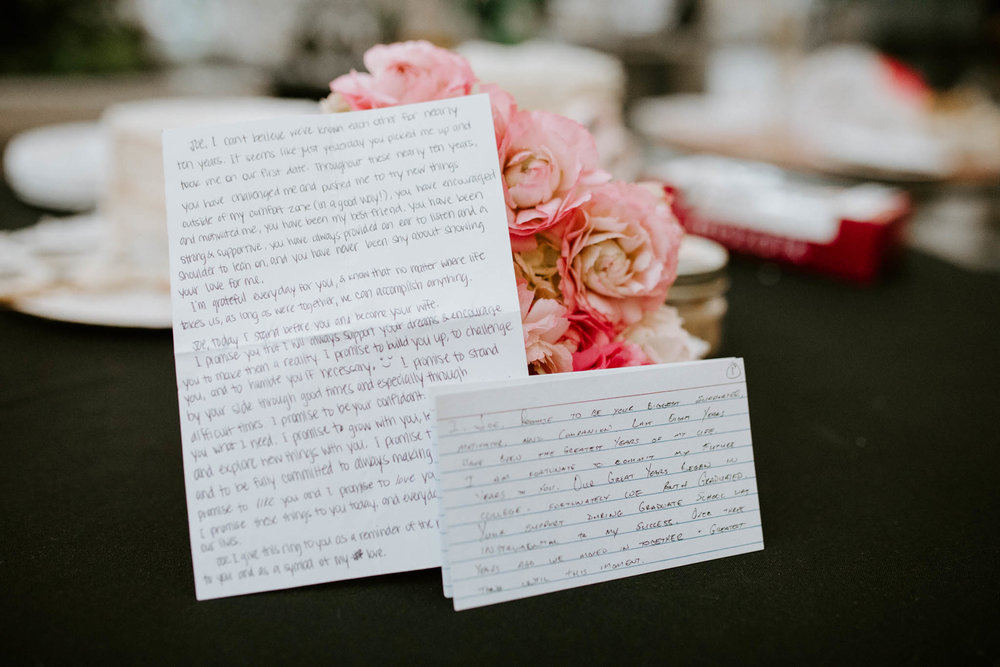 Joe, I can't believe we've known each other for nearly
ten years. It seems like just yesterday you picked me up and
took me on our first date. Throughout these nearly ten years,
you have challenged me and pushed me to try new things
outside of my comfort zone (in a good way!), you have encouraged
and motivated me, you have been my best friend, you have been
strong & supportive, you have always provided an ear to listen and a
shoulder to lean on, and you have never been shy about showing
your love for me.
I'm grateful everyday for you, & know that no matter where life
takes us, as long as we're together, we can accomplish anything.
Joe, today I stand before you and become your wife.
I promise you that I will always support your dreams & encourage
you to make them a reality. I promise to build you up, to challenge
you, and to humble you if necessary. I promise to stand
by your side through good times and especially through
difficult times. I promise to be your confidant.
you what I need. I promise to grow with you,
and explore new things with you. I promise
and to be fully committed to always making
promise to like you and I promise to love you
I promise these things to you today, and everyday
our lives.
Joe I give this ring to you as a reminder of the
to you and as a symbol of my love.
1
I, Joe, promise to be your biggest supporter,
motivator, and companion. Last eight years
have been the greatest years of my life.
I am fortunate to commit my future
years to you. Our great years began in
college. Fortunately we both graduated.
Your support during graduate school was
instrumental to my success. Over three
years ago we moved in together - greatest
than until this moment.